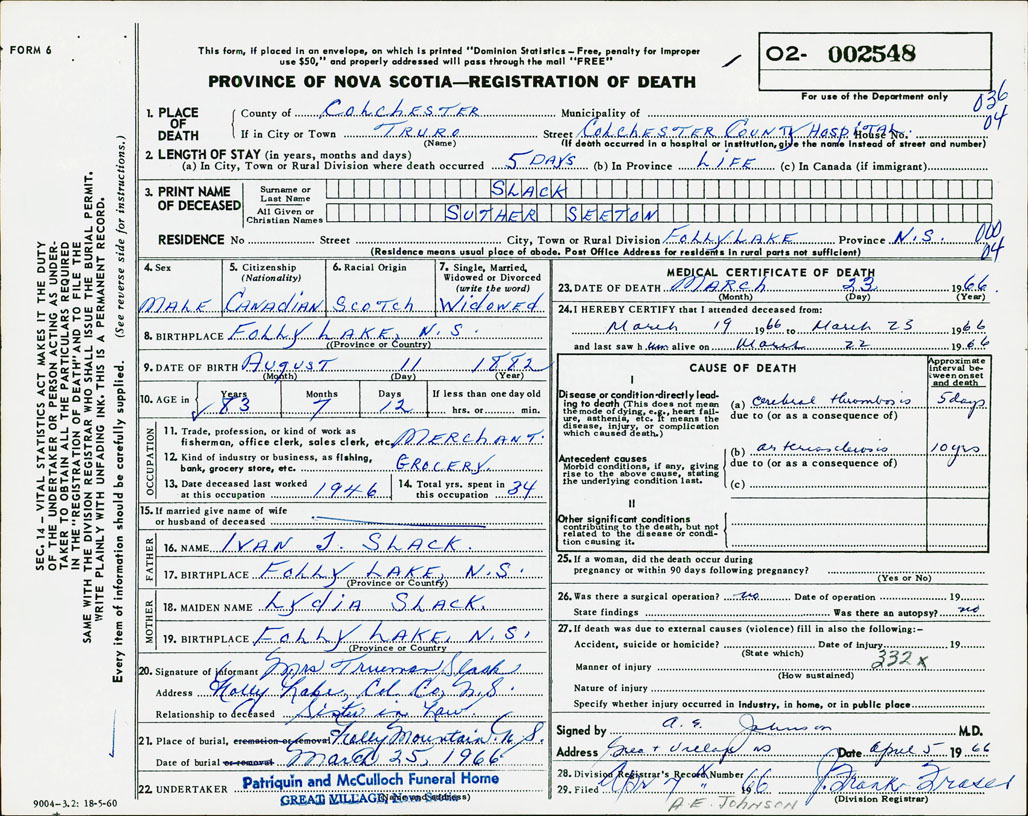 FORM 6
This form, if placed in an envelope, on which is printed "Dominion Statistics – Free, penalty for improper
use $50," and properly addressed will pass through the mail "FREE"
PROVINCE OF NOVA SCOTIA—REGISTRATION OF DEATH
O2- 002548
For use of the Department only
036
04
1. PLACE OF DEATH
County of COLCHESTER Municipality of
If in City or Town TRURO Street COLCHESTER COUNTY HOSPITAL House No.
(Name) (If death occurred in a hospital or institution, give the name instead of street and number)
2. LENGTH OF STAY (in years, months and days)
(a) In City, Town or Rural Division where death occurred 5 DAYS (b) In Province LIFE (c) In Canada (if immigrant)
3. PRINT NAME OF DECEASED
Surname or Last Name SLACK
All Given or Christian Names SUTHER SEETON
RESIDENCE No Street City, Town or Rural Division FOLLY LAKE Province N.S.
000
04
(Residence means usual place of abode. Post Office Address for residents in rural parts not sufficient)
4. Sex MALE
5. Citizenship (Nationality) CANADIAN
6. Racial Origin SCOTCH
7. Single, Married, Widowed or Divorced (write the word) WIDOWED
8. BIRTHPLACE FOLLY LAKE, N.S.
(Province or Country)
9. DATE OF BIRTH AUGUST 11 1882
(Month) (Day) (Year)
10. AGE in Years 83 Months 7 Days 12 If less than one day old
hrs. or min.
OCCUPATION
11. Trade, profession, or kind of work as
fisherman, office clerk, sales clerk, etc. MERCHANT.
12. Kind of industry or business, as fishing,
bank, grocery store, etc. GROCERY
13. Date deceased last worked
at this occupation 1946
14. Total yrs. spent in
this occupation 34
15. If married give name of wife
or husband of deceased
FATHER
16. NAME IVAN J. SLACK.
17. BIRTHPLACE FOLLY LAKE, N.S.
(Province or Country)
MOTHER
18. MAIDEN NAME LYDIA SLACK.
19. BIRTHPLACE FOLLY LAKE, N.S.
(Province or Country
20. Signature of informant Mrs Trueman Slack
Address Folly Lake, Col. Co, N.S.
Relationship to deceased Sister in Law.
21. Place of burial, cremation or removal Folly Mountain N.S.
Date of burial or removal March 25, 1966
22. UNDERTAKER Patriquin and McCulloch Funeral Home
GREAT VILLAGE, Nova Scotia
(Name and address)
9004-3.2: 18-5-60
MEDICAL CERTIFICATE OF DEATH
23. DATE OF DEATH MARCH 23 1966
(Month) (Day) (Year)
24. I HEREBY CERTIFY that I attended deceased from:
March 19 1966 to March 23 1966
and last saw him alive on March 22 1966
CAUSE OF DEATH
Approximate interval between onset and death
I
Disease or condition directly leading to death (This does not mean the mode of dying, e.g., heart failure, asthenia, etc. It means the disease, injury, or complication which caused death.)
(a) cerebral thrombosis 5 days
due to (or as a consequence of)
Antecedent causes
Morbid conditions, if any, giving rise to the above cause, stating the underlying condition last.
(b) arteriosclerosis 10 yrs
due to (or as a consequence of)
(c)
II
Other significant conditions
contributing to the death, but not related to the disease or condition causing it.
25. If a woman, did the death occur during
pregnancy or within 90 days following pregnancy?
(Yes or No)
26. Was there a surgical operation? no Date of operation 19
State findings Was there an autopsy? no
27. If death was due to external causes (violence) fill in also the following:–
Accident, suicide or homicide? Date of injury 19
(State which)
332x
Manner of injury
(How sustained)
Nature of injury
Specify whether injury occurred in industry, in home, or in public place
Signed by A. E. Johnson M.D.
Address Great Village NS Date April 5 1966
28. Division Registrar's Record Number
29. Filed 1966
(Division Registrar)
A.E. JOHNSON
SEC. 14 – VITAL STATISTICS ACT MAKES IT THE DUTY
OF THE UNDERTAKER OR PERSON ACTING AS UNDER-
TAKER TO OBTAIN ALL THE PARTICULARS REQUIRED
IN THE "REGISTRATION OF DEATH" AND TO FILE THE
SAME WITH THE DIVISION REGISTRAR WHO SHALL ISSUE THE BURIAL PERMIT.
WRITE PLAINLY WITH UNFADING INK. THIS IS A PERMANENT RECORD.
Every item of information should be carefully supplied. (See reverse side for instructions.)